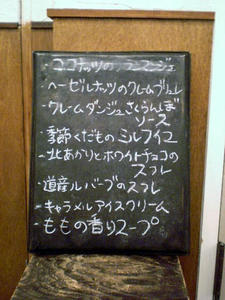 ・ココナッツのブランマンジュ
・ヘーゼルナッツのクレームブリュレ
・クレームダンジュさくらんぼ
ソース
・季節くだもの ミルフイユ
・北あかりとホワイトチョコの
スフレ
・道産ルバーブのスフレ
・キャラメルアイスクリーム
・ももの香りスープ